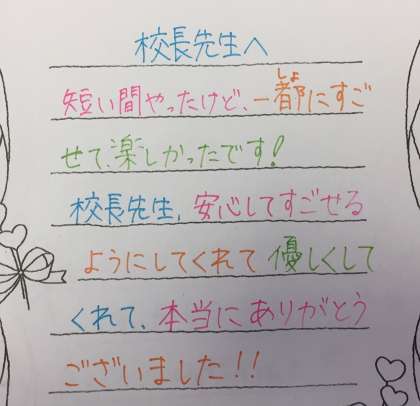 校長先生へ
短い間やったけど、一都にすご
しょ
せて、楽しかったです!
校長先生、安心してすごせる
ようにしてくれて優しくして
くれて、本当にありがとう
ございました!!